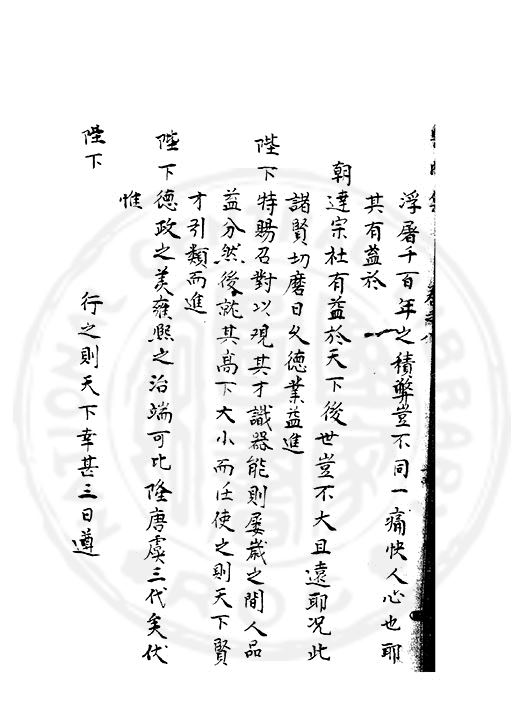 浮屠千百年之積弊豈不同一痛快人心也耶
其有益於
朝達宗社有益於天下後世豈不大且遠耶况此
諸賢切磨日久德業益進
陛下特賜召對以觀其才識器能則屡歲之間人品
益分然後就其高下大小而任使之則天下賢
才引類而進
陛下德政之美雍熙之治端可比隆唐虞三代矣伏
惟
陛下 行之則天下幸甚三日遵